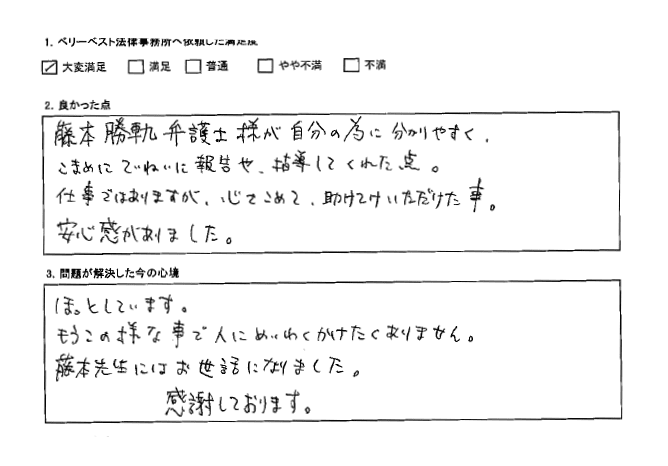 1. ベリーベスト法律事務所へ依頼した満足度
☑ 大変満足 □ 満足 □ 普通 □ やや不満 □ 不満
2. 良かった点
藤本 勝軌 弁護士 様が 自分の為に 分かりやすく、
こまめに ていねいに 報告や、指導してくれた点。
仕事ではありますが、心をこめて、助けてけいただけた事。
安心感がありました。
3. 問題が解決した今の心境
ほっとしています。
もうこの様な事で人にめいわくかけたくありません。
藤本先生にはお世話になりました。
感謝しております。